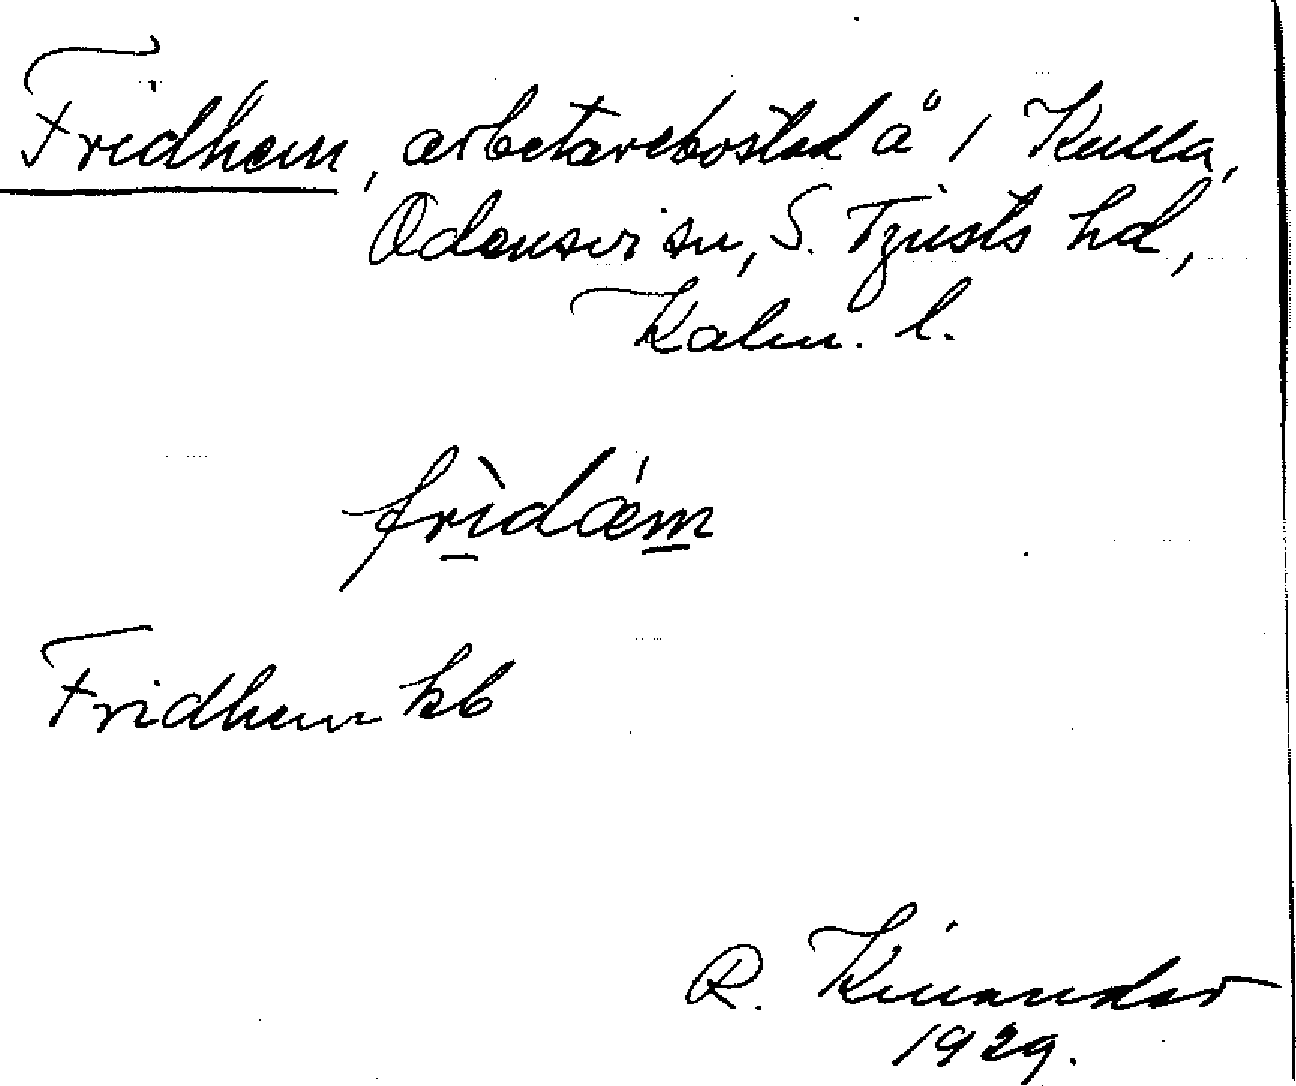 Fridhem, arbetarebostad å 1 Kulla,
Odensvi sn, S. Tjusts hd,
Kalm. l.
frìdǽm
Fridhem kb
R. Kinander
1929.